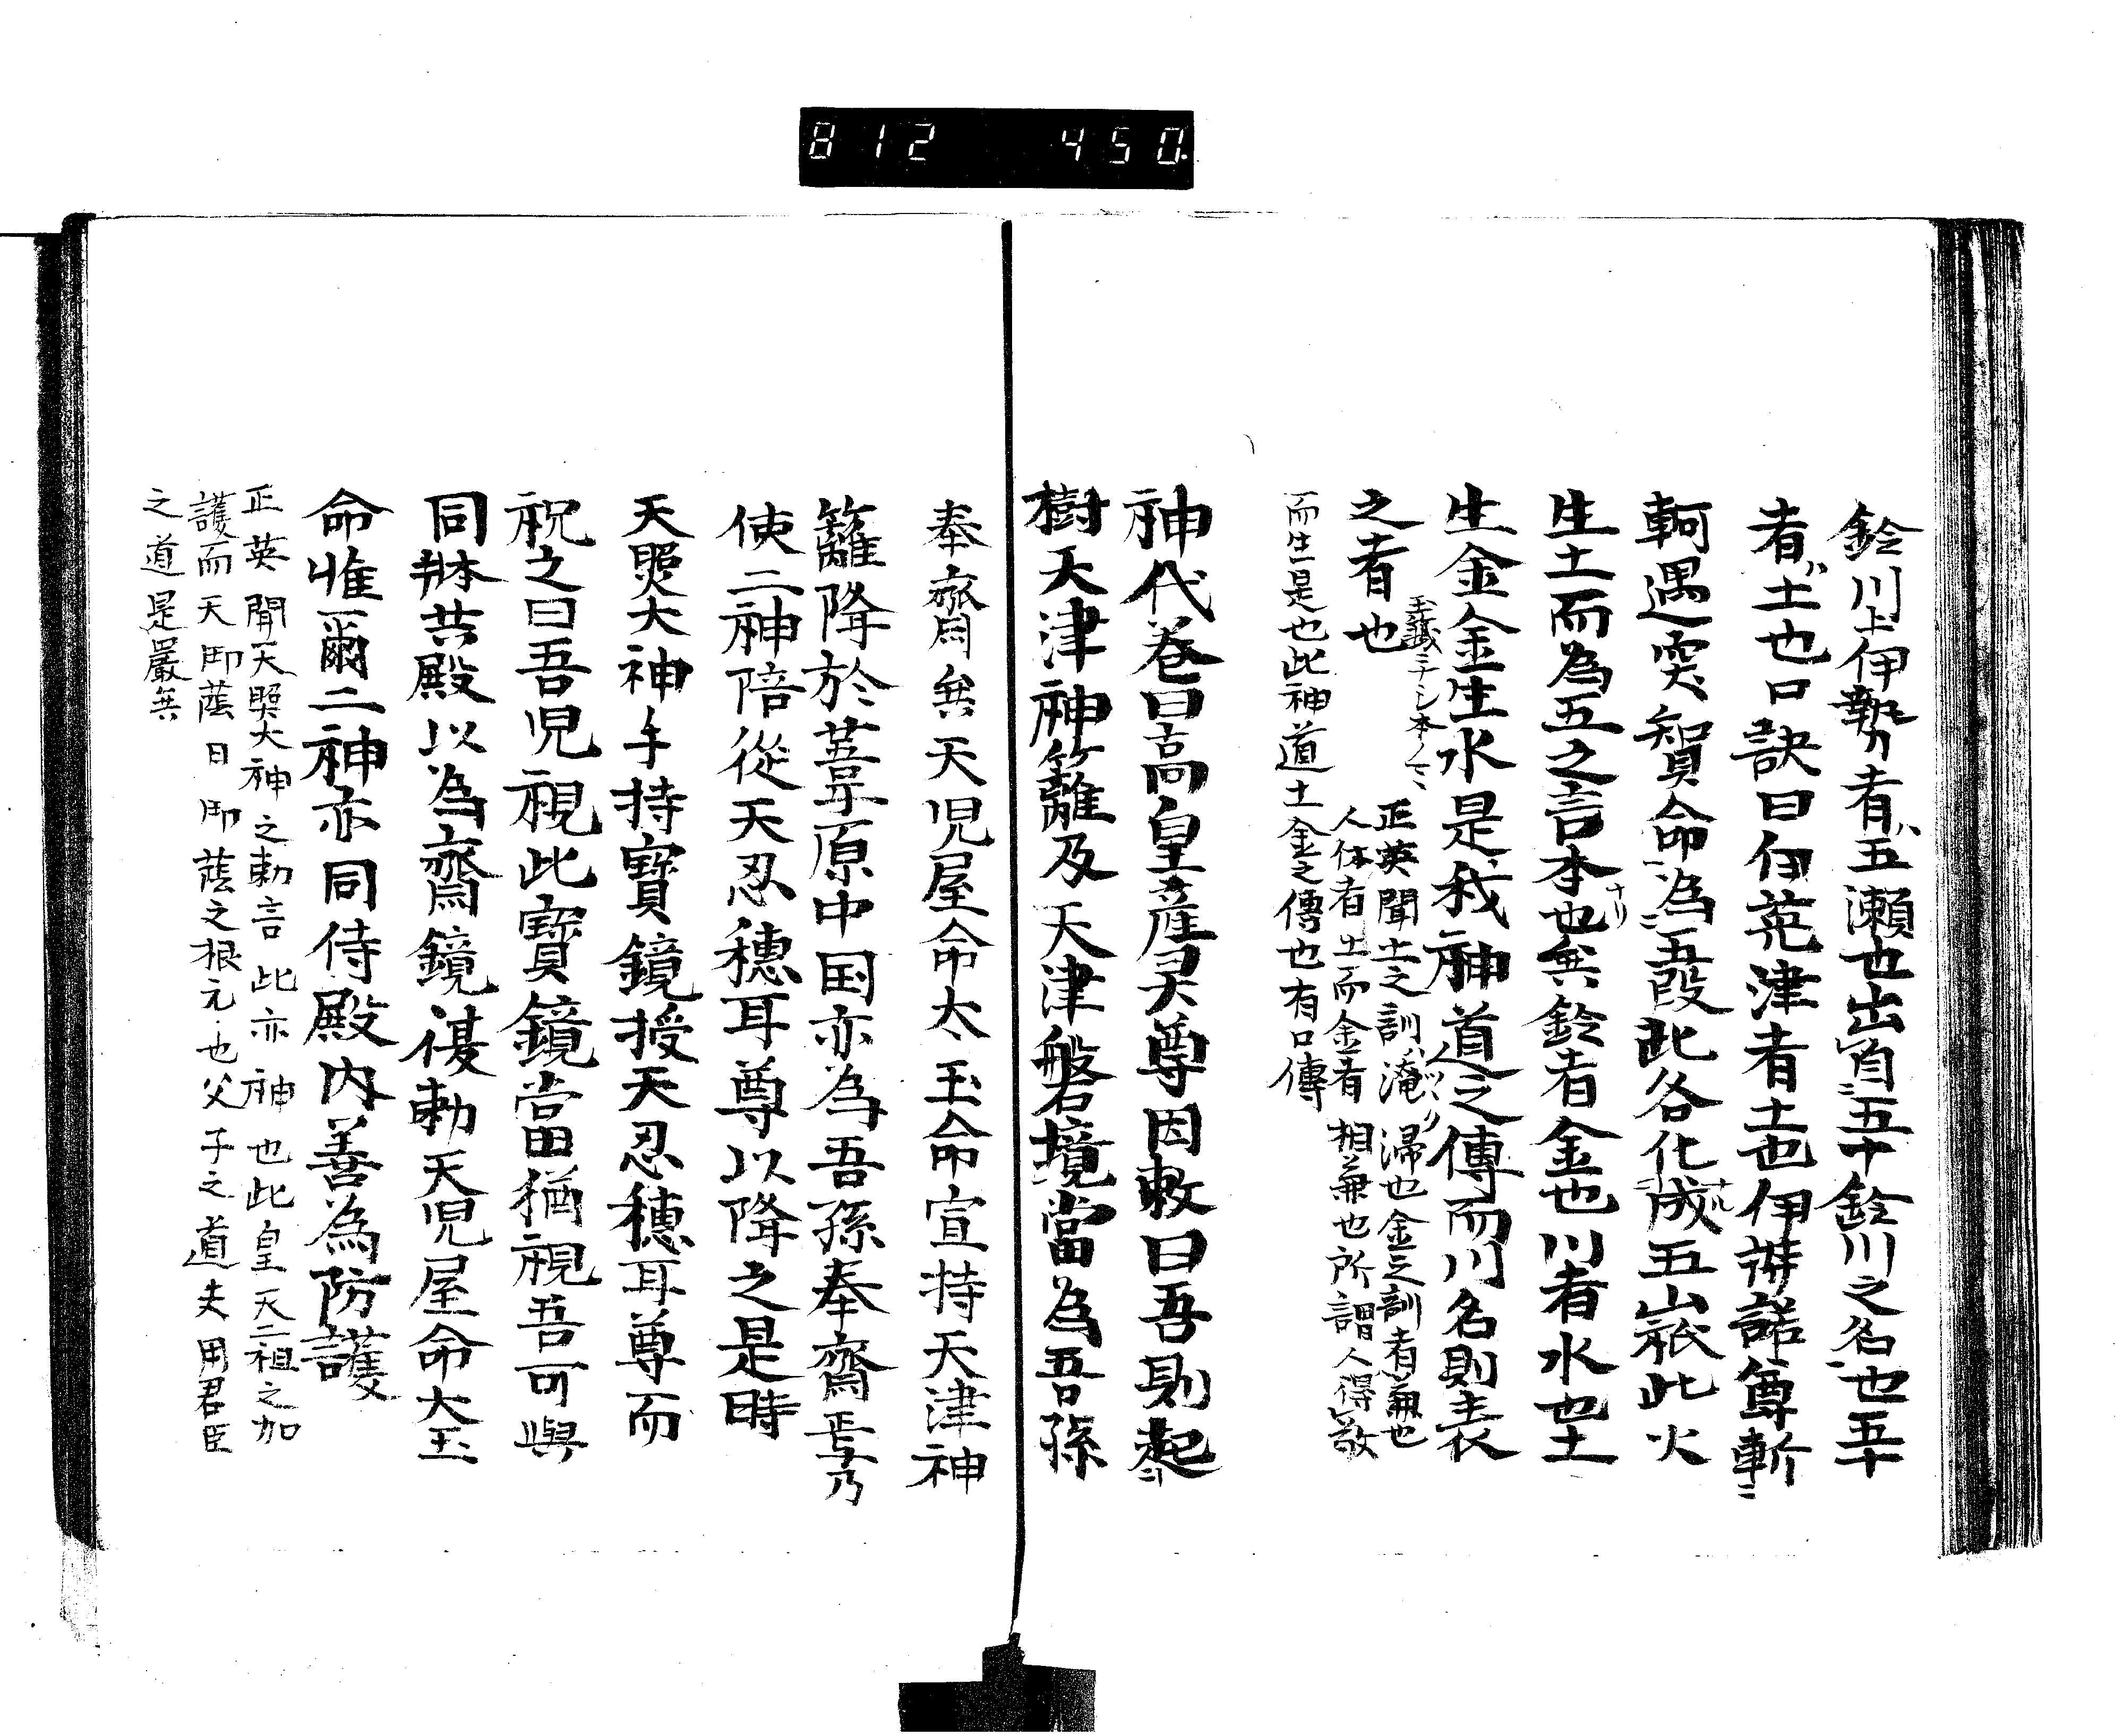 812 450.
鈴川上伊勢者五瀬也出自五十鈴川之名也五十
者土也口訣曰伊茺津者土也伊弉諾尊斬
軻遇突智命為五段此各化成五山祇此火
生土而為五之言本也矣鈴者金也川者水也土
生金金生水是我神道之傳而川名則表
之者也
正英聞土之訓淹滞也金之訓者兼也
人体者土而金者相兼也所謂人得敬
而生是也此神道土金之傳也有口傳
神代巻曰高皇産霊尊因敕曰吾則起
樹天津神籬及天津磐境當為吾孫
奉齋矣天児屋命太玉命宣持天津神
籬降於葦原中国亦為吾孫奉齋焉乃
使二神陪從天忍穗耳尊以降之是時
天照大神手持寶鏡授天忍穗耳尊而
祝之曰吾児視此寶鏡當猶視吾可與
同牀共殿以為齋鏡復勅天児屋命太玉
命惟爾二神亦同侍殿内善為防護
正英聞天照大神之勅言此亦神也此皇天二祖之加
護而天即蔭日即蔭之根元也父子之道夫用君臣
之道是嚴矣